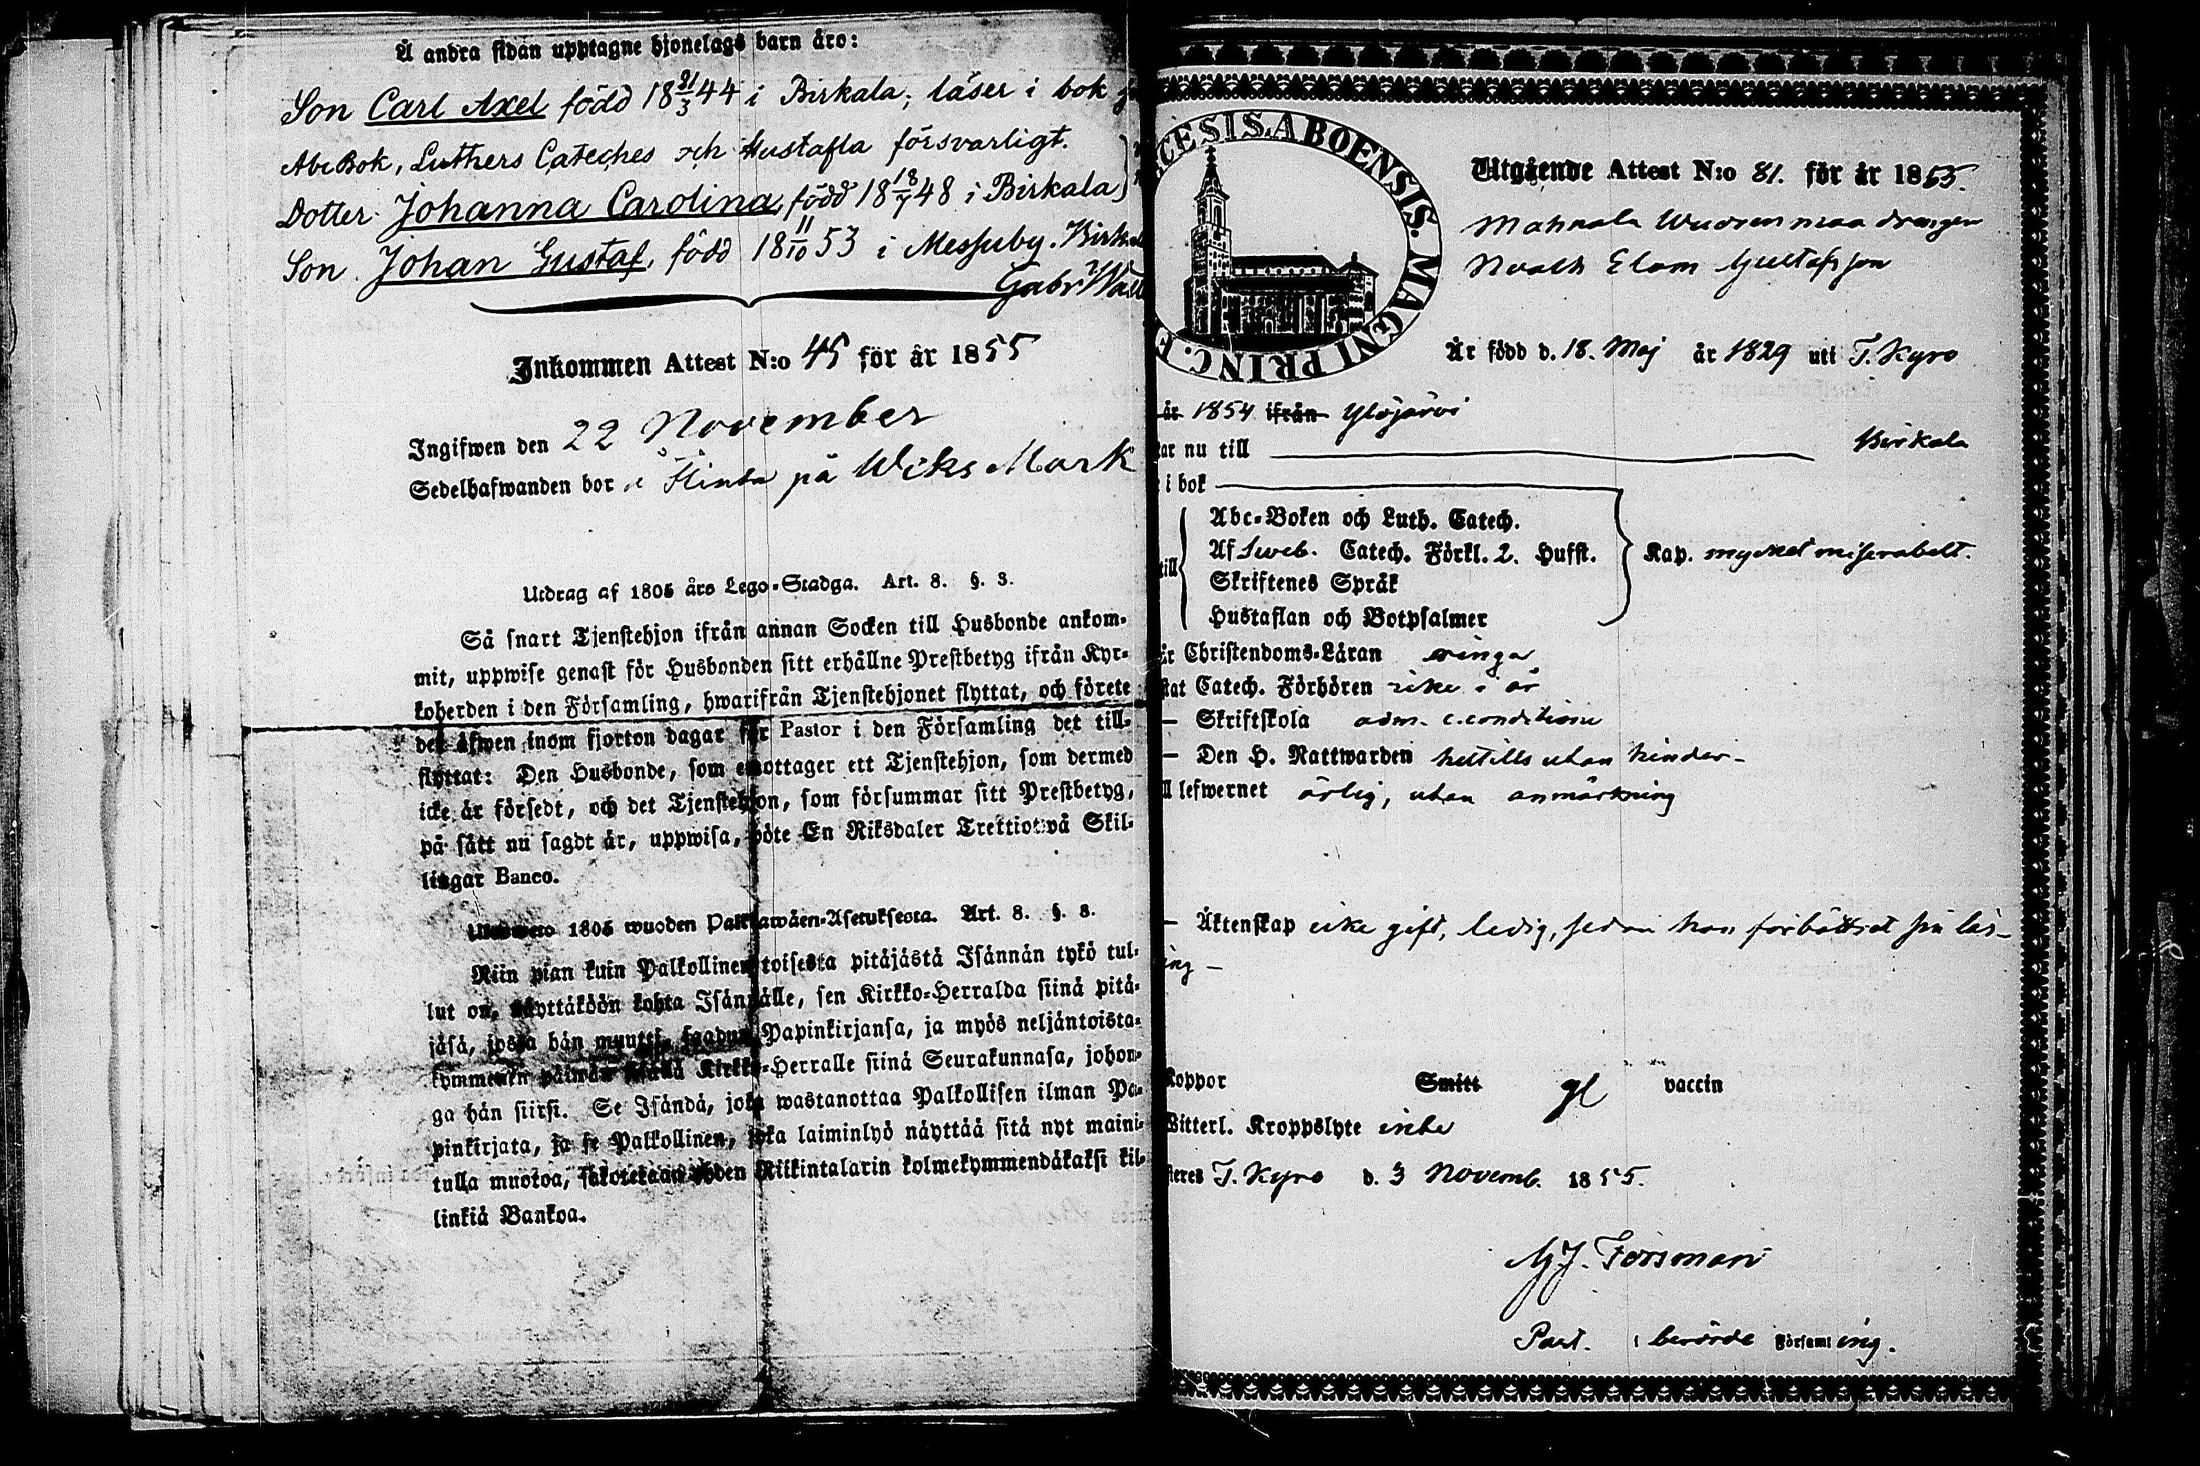 Å andra sidan upptagne hjonelags barn äro:
Son Carl Axel född 18 21/3 44 i Birkala; läser i bok
AbcBok, Luthers Cateches och Hustafla försvarligt.
Dotter Johanna Carolina, född 18 18/7 48 i Birkala
Son Johan Gustaf, född 18 11/10 53 i Messuby. Birk
Gabr Wa
Inkommen Attest N:o 45 för år 1855
Ingifwen den 22 November
Sedelhafwanden bor i Hinsa på Wiks Mark
Utdrag af 1805 års Lego-Stadga. Art. 8. §. 3.
Så snart Tjenstehjon ifrån annan Socken till Husbonde ankom-
mit, uppwise genast för Husbonden sitt erhållne Prestbetyg ifrån Kyr-
koherden i den Församling, hwarifrån Tjenstehjonet flyttat, och förete
det äfwen inom fjorton dagar för Pastor i den Församling det till-
flyttat: Den Husbonde, som emottager ett Tjenstehjon, som dermed
icke är försedt, och det Tjenstehjon, som försummar sitt Prestbetyg,
på sätt nu sagdt är, uppwisa, böte En Riksdaler Trettiotwå Skil-
lingar Banco.
1805 wuoden Palkkawäen-Asetuksesta. Art. 8. §. 3.
Niin pian kuin Palkollinen toisesta pitäjästä Isännän tykö tul-
lut on, näyttäköön kohta Isännälle, sen Kirkko-Herralda siinä pitä-
jäsä, josta hän muutti, saadun Papinkirjansa, ja myös neljäntoista-
kymmenen päiwän sisällä Kirkko-Herralle siinä Seurakunnasa, johon-
ga hän siirsi. Se Isändä, joka wastanottaa Palkollisen ilman Pa-
pinkirjata, ja se Palkollinen, joka laiminlyö näyttää sitä nyt maini-
tulla muotoa, sakotetaan yhden Riikintalarin kolmekymmendäkaksi kil-
linkiä Bankoa.
CESIS. ABOENSIS. MAGNI PRINC. F
Utgående Attest N:o 81. för år 1855.
Mahnala Wuorenmaa drengen
Noach Elam Gustafsson
Är född d. 18. Maj år 1829 uti T. Kyro
år 1854 ifrån Ylöjärvi
ar nu till Birkala
i bok
till
Abc-Boken och Luth. Catech.
Af Sweb. Catech. Förkl. 2. Husst.
Skriftenes Språk
Hustaflan och Botpsalmer
Kap. mycket miserabelt.
är Christendoms-Läran ringa
stat Catech. Förhören icke i år
— Skriftskola adm. c. conditione
— Den H. Nattwarden hittills utan hinder -
ll lefwernet ärlig, utan anmärkning
— Äktenskap icke gift, ledig, sedan han förbättrat sin läs-
ing -
Koppor Smitt gl vaccin
Witterl. Kroppslyte inte
steres T. Kyro d. 3 Novemb. 1855.
G. J. Forsman
Past. i berörde Församling.